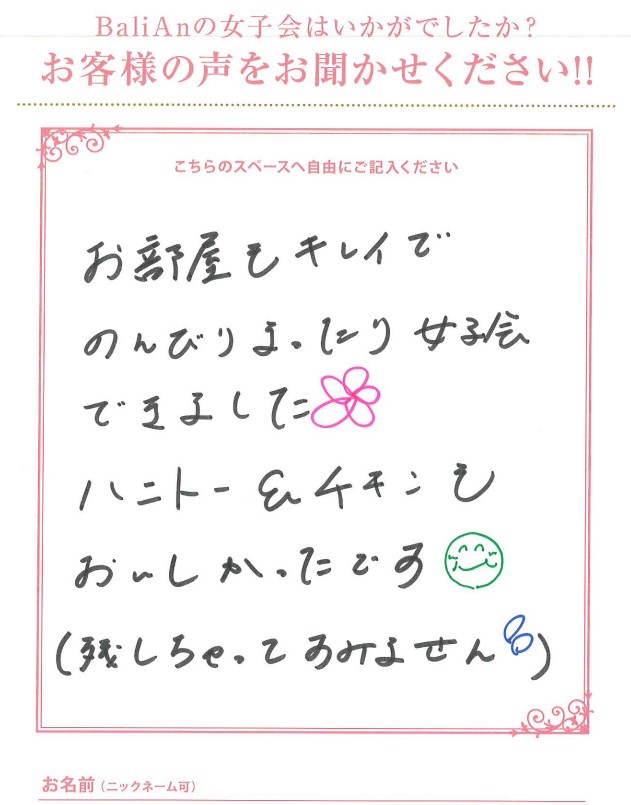 BaliAnの女子会はいかがでしたか?
お客様の声をお聞かせください!!
こちらのスペースへ自由にご記入ください
お部屋もキレイで
のんびりまったり女子会
できました
ハニトー&チキンも
おいしかったです
(残しちゃってすみません)
お名前(ニックネーム可)